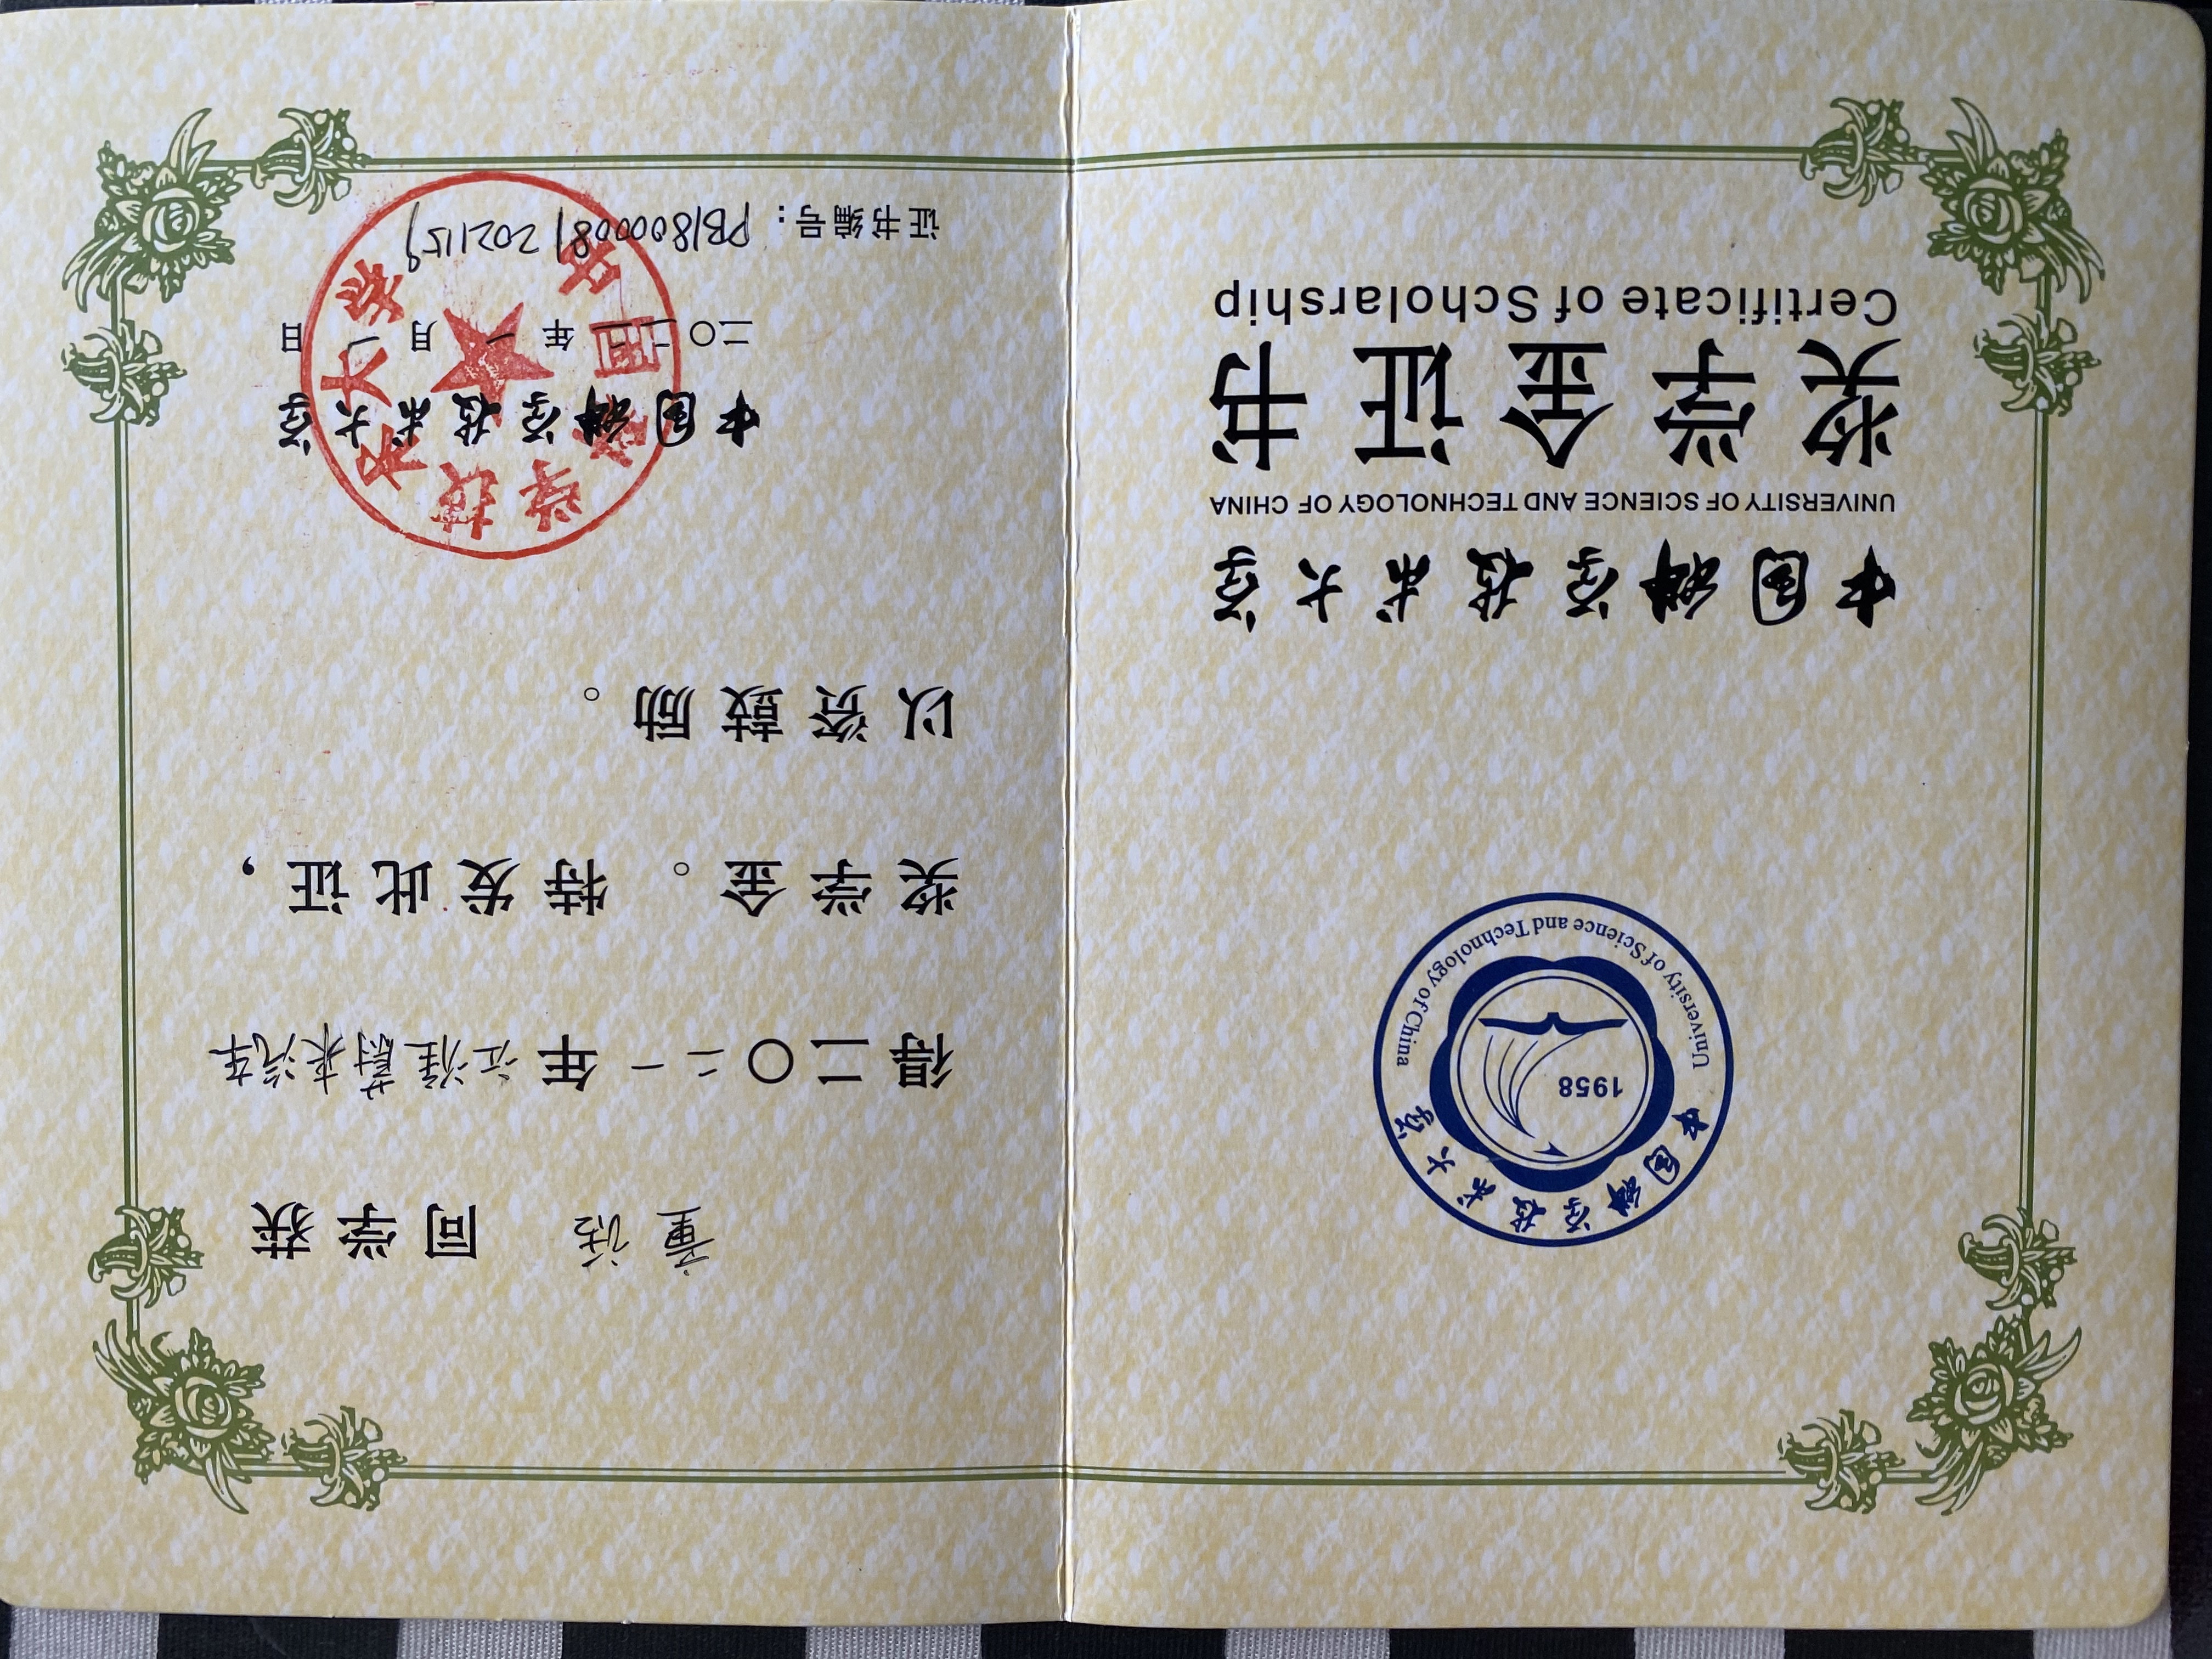 中国科学技术大学
1958
University of Science and Technology of China
中国科学技术大学
UNIVERSITY OF SCIENCE AND TECHNOLOGY OF CHINA
奖学金证书
Certificate of Scholarship
童话 同学获
得二〇二一年江淮蔚来汽车
奖学金。特发此证，
以资鼓励。
中国科学技术大学
中国科学技术大学
二〇二二年一月一日
证书编号：PB18000081 2021159